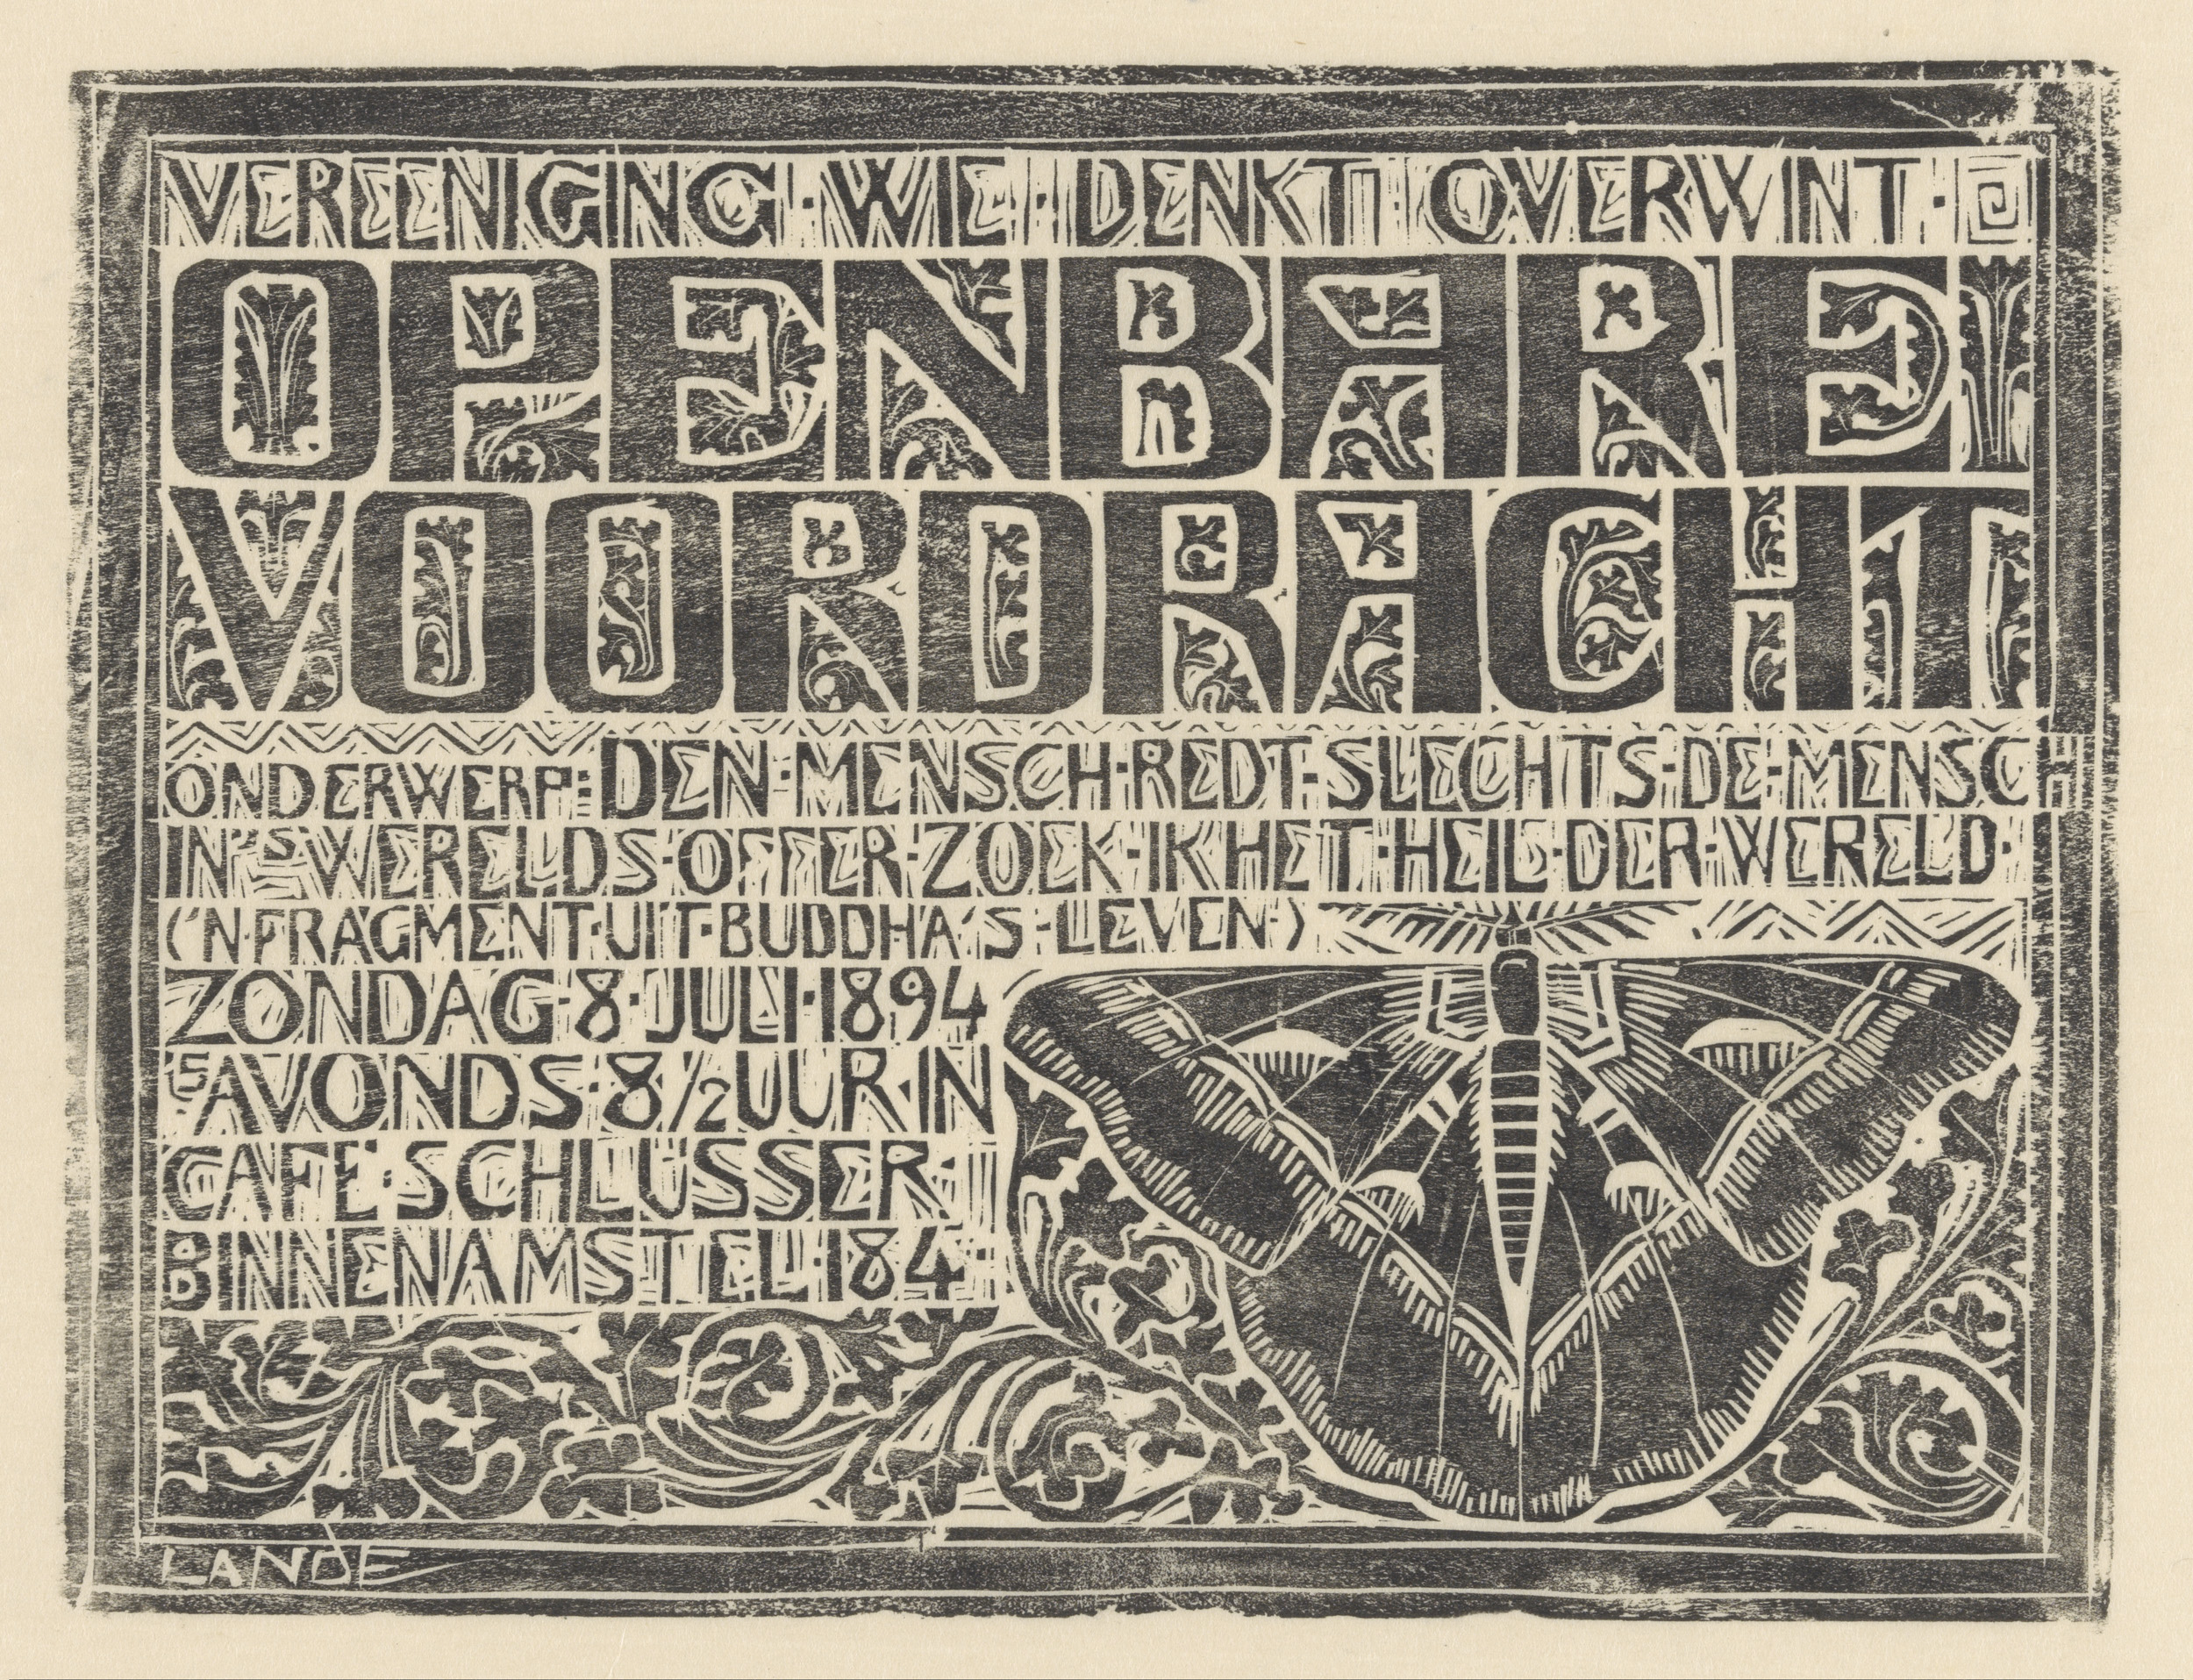 VEREENIGING · WIE · DENKT · OVERWINT ·
OPENBARE
VOORDRACHT
ONDERWERP: DEN · MENSCH · REDT · SLECHTS · DE · MENSCH
IN 'S WERELDS · OFFER · ZOEK · IK HET · HEIL · DER · WERELD ·
('N · FRAGMENT · UIT · BUDDHA'S · LEVEN · )
ZONDAG · 8 · JULI · 1894
'S AVONDS · 8 1/2 UUR · IN
CAFE · SCHLÜSSER
BINNENAMSTEL · 184 ·
LANDE